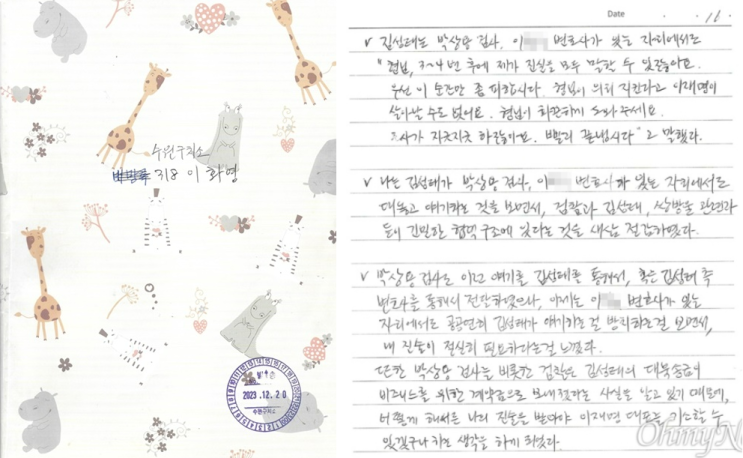 수원구치소
318 이화영
발송
2023.12.20
수원구치소
Date 16
∨ 김성태는 박상용 검사, 이 변호사가 있는 자리에서도
"형님, 3~4년 후에 제가 진실을 모두 말할 수 있잖아요.
우선 이 순간만 좀 피합시다. 형님이 의리 지킨다고 이재명이
살아날 수도 없어요. 형님이 화끈하게 도와주세요.
조사가 지긋지긋 하잖아요. 빨리 끝냅시다"고 말했다.
∨ 나는 김성태가 박상용 검사, 이 변호사가 있는 자리에서도
대놓고 얘기하는 것을 보면서, 검찰과 김성태, 쌍방울 관련자
들이 긴밀한 협력구조에 있다는 것을 새삼 절감하였다.
∨ 박상용 검사는 이런 얘기를 김성태를 통해서, 혹은 김성태 측
변호사를 통해서 전달하였으나, 이제는 이 변호사가 있는
자리에서도 공공연히 김성태가 얘기하는 걸 방치하는걸 보면서,
내 진술이 절실히 필요하다는걸 느꼈다.
또한 박상용 검사를 비롯한 검찰은 김성태의 대북송금이
비즈니스를 위한 계약금으로 보내졌다는 사실을 알고 있기 때문에,
어떻게 해서든 나의 진술을 받아야 이재명 대표는 기소할 수
있겠구나 하는 생각을 하게 되었다.
OhmyN